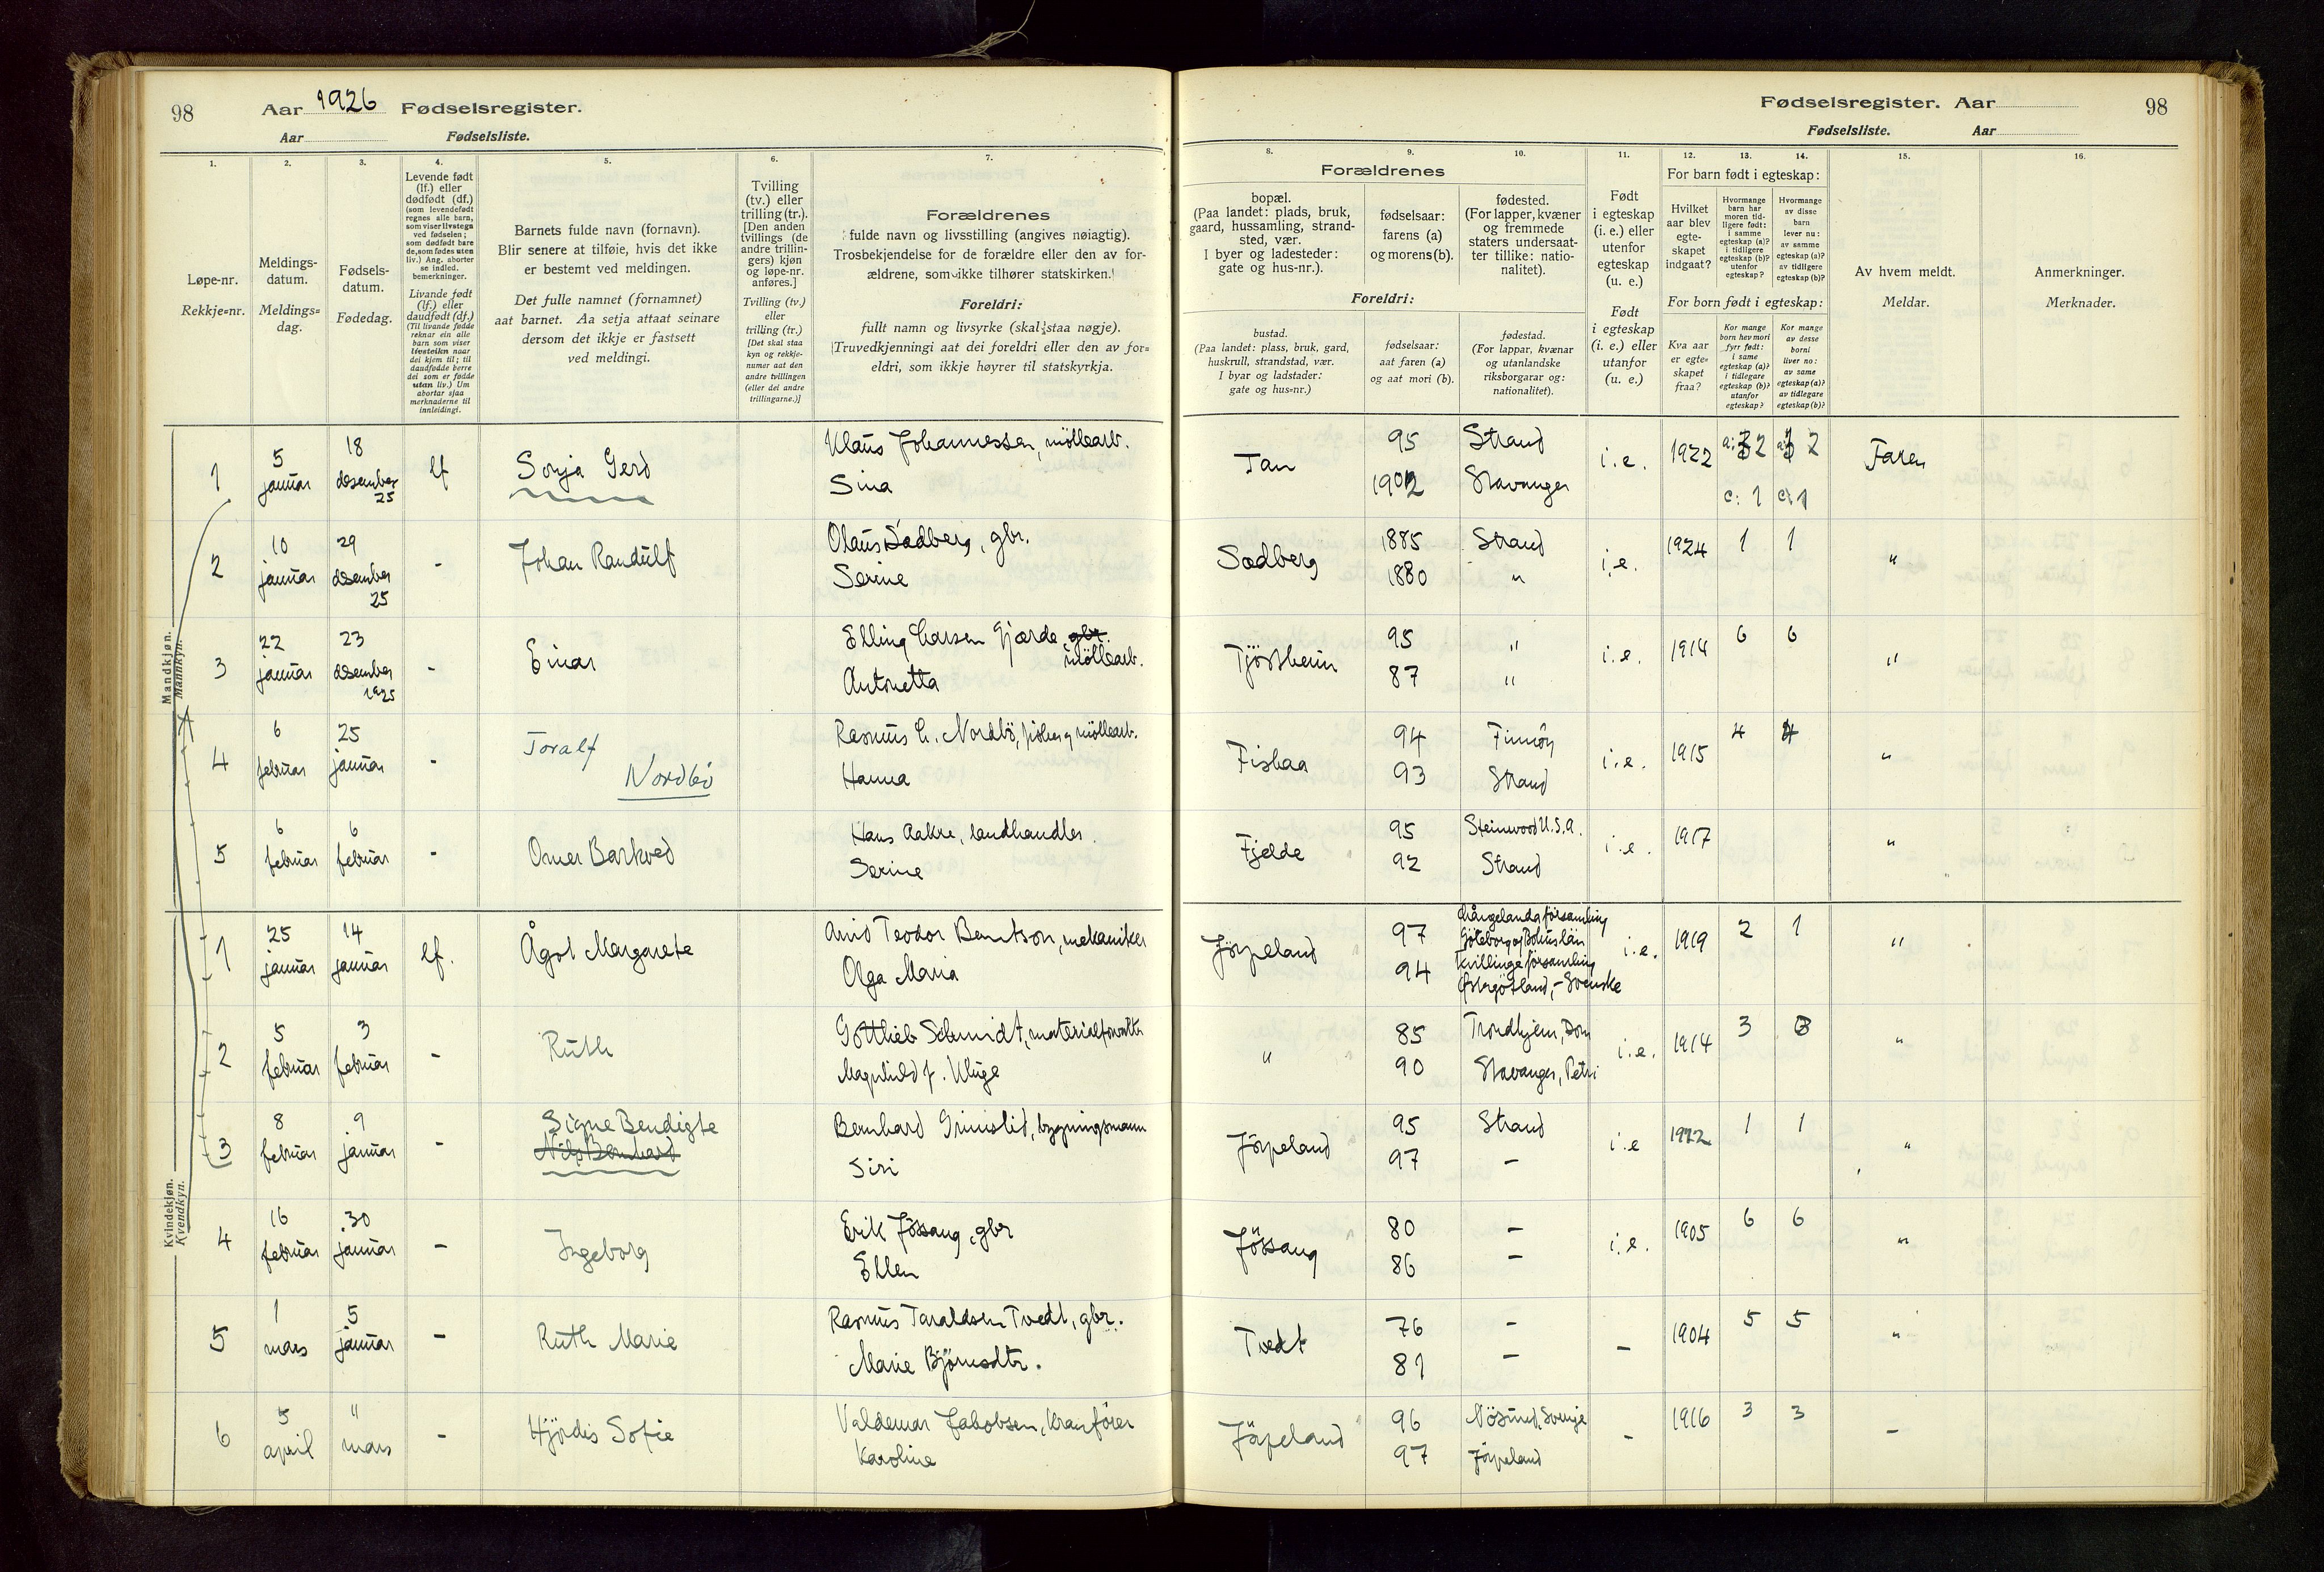 98
Aar 1926 Fødselsregister.
Aar Fødselsliste.
1. 2. 3. 4. 5. 6. 7.
Løpe-nr.
Rekkje=nr.
Meldings-
datum.
Meldings=
dag.
Fødsels-
datum.
Fødedag.
Levende født
(lf.) eller
dødfødt (df.)
(som levendefødt
regnes alle barn,
som viser livstegn
ved fødselen;
som dødfødt bare
de, som fødes uten
liv.) Ang. aborter
se indled.
bemerkninger.
Livande født
(lf.) eller
daudfødt (df.)
(Til livande fødde
reknar ein alle
barn som viser
livsteikn naar
dei kjem til; til
daudfødde berre
dei som er fødde
utan liv.) Um
abortar sjaa
merknaderne til
innleidingi.
Barnets fulde navn (fornavn).
Blir senere at tilføie, hvis det ikke
er bestemt ved meldingen.
Det fulle namnet (fornamnet)
aat barnet. Aa setja attaat seinare
dersom det ikkje er fastsett
ved meldingi.
Tvilling
(tv.) eller
trilling (tr.).
[Den anden
tvillings (de
andre trillin-
gers) kjøn
og løpe-nr.
anføres.]
Tvilling (tv.)
eller
trilling (tr.)
[Det skal staa
kyn og rekkje-
numer aat den
andre tvillingen
(eller dei andre
trillingarne.)]
Forældrenes
fulde navn og livsstilling (angives nøiagtig).
Trosbekjendelse for de forældre eller den av for-
ældrene, som ikke tilhører statskirken.
Foreldri:
fullt namn og livsyrke (skal staa nøgje).
Truvedkjenningi aat dei foreldri eller den av for=
eldri, som ikkje høyrer til statskyrkja.
Mandkjøn.
Mannkyn.
1 5 januar 18 desember 25 lf Sonja Gerd Klaus Johannessen, möllearb.
Sina
2 10 januar 29 desember 25 - Johan Randulf Olaus Sadberg, gbr.
Serine
3 22 januar 23 desember 1925 - Einar Elling Larsen Gjærde gbr. möllearb.
Antonetta
4 6 februar 25 januar - Toralf Nordbö Rasmus L. Nordbö, fisker og möllearb.
Hanna
5 6 februar 6 februar - Omer Barkved Hans Aakre, landhandler
Serine
Kvindekjøn.
Kvendkyn.
1 25 januar 14 januar lf. Ågot Margarete Arvid Teodor Berntson, mekaniker
Olga Maria
2 5 februar 3 februar - Ruth Gottlieb Schmidt, materialforvalter
Magnhild f. Kluge
3 8 februar 9 januar - Signe Bendigte
Nils Bernhard
Bernhard Grimslid, bygningsmann
Siri
4 16 februar 30 januar - Ingeborg Erik Jössang, gbr
Ellen
5 1 mars 5 januar - Ruth Marie Rasmus Taraldsen Tvedt, gbr.
Marie Björnsdtr.
6 5 april " mars - Hjördis Sofie Valdemar Jakobsen, Kranförer
Karoline
Fødselsregister. Aar
98
Fødselsliste. Aar
8. 9. 10. 11. 12. 13. 14. 15. 16.
Forældrenes
bopæl.
(Paa landet: plads, bruk,
gaard, hussamling, strand-
sted, vær.
I byer og ladesteder:
gate og hus-nr.).
fødselsaar:
farens (a)
og morens (b).
fødested.
(For lapper, kvæner
og fremmede
staters undersaat-
ter tillike: natio-
nalitet).
Foreldri:
bustad.
(Paa landet: plass, bruk, gard,
huskrull, strandstad, vær.
I byar og ladstader:
gate og hus-nr.)
fødselsaar:
aat faren (a)
og aat mori (b).
fødestad.
(For lappar, kvænar
og utanlandske
riksborgarar og:
nationalitet).
Født
i egteskap
(i. e.) eller
utenfor
egteskap
(u. e.)
Født
i egteskap
(i. e.) eller
utanfor
(u. e.)
For barn født i egteskap:
Hvilket
aar blev
egte-
skapet
indgaat?
Hvormange
barn har
moren tid-
ligere født:
i samme
egteskap (a)?
i tidligere
egteskap (b)?
utenfor
egteskap?
Hvormange
av disse
barn
lever nu:
av samme
egteskap (a)?
av tidligere
egteskap (b)?
For born født i egteskap:
Kva aar
er egte-
skapet
fraa?
Kor mange
born hev mori
fyrr født:
i same
egteskap (a)?
i tidlegare
egteskap (b)?
utanfor
egteskap?
Kor mange
av desse
borni
liver no:
av same
egteskap (a)?
av tidlegare
egteskap (b)?
Av hvem meldt.
Meldar.
Anmerkninger.
Merknader.
Tau 95 Strand i.e. 1922 a: 2 a: 2 Faren
1902 Stavanger c: 1 c: 1
Sadberg 1885 Strand i.e. 1924 1 1 "
1880 "
Tjöstheim 95 " i.e. 1914 6 6 "
87 "
Fiskaa 94 Finnöy i.e. 1915 4 4 "
93 Strand
Fjelde 95 Steinwood U.S.A. i.e. 1917 "
92 Strand
Jörpeland 97 Långelanda församling
Göteborg og Bohuslän i.e. 1919 2 1 "
94 Kvillinge församling
Østergötland, - Svenske
" 85 Trondhjem, Dom i.e. 1914 3 3 "
90 Stavanger, Petri
Jörpeland 95 Strand i.e 1922 1 1 "
97 -
Jössang 80 - i.e. 1905 6 6 "
86 -
Tvedt 76 - - 1904 5 5 "
81 -
Jörpeland 96 Nösund, Sverige - 1916 3 3 -
97 Jörpeland